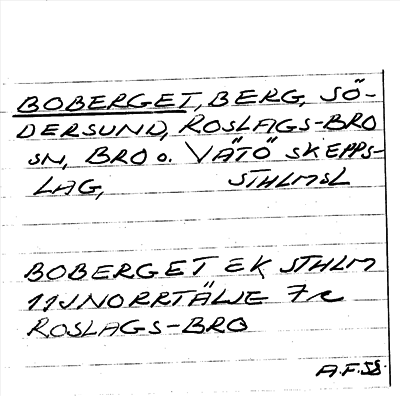 BOBERGET, BERG, SÖ-
DERSUND, ROSLAGS-BRO
SN, BRO o. VÄTÖ SKEPPS-
LAG, STHLMSL
BOBERGET EK STHLM
11J NORRTÄLJE 7c
ROSLAGS-BRO
A.F.58.